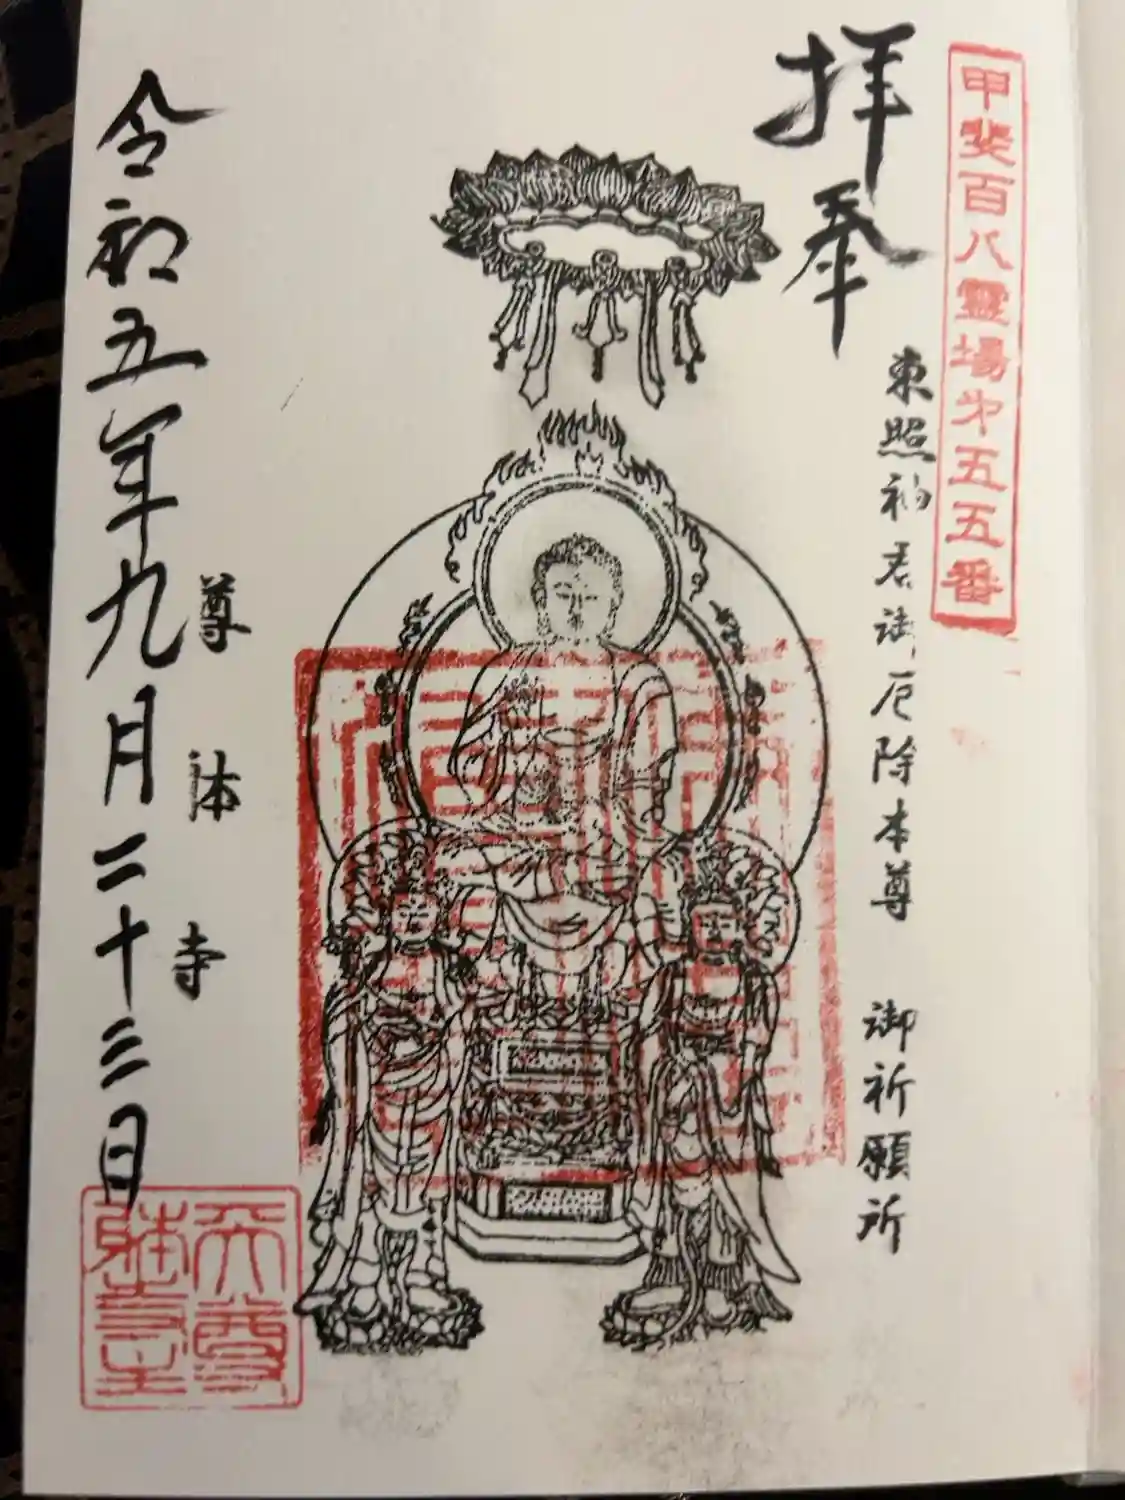 甲斐百八霊場第五五番
奉拝
東照神君御厄除本尊 御祈願所
尊体寺
令和五年九月二十三日